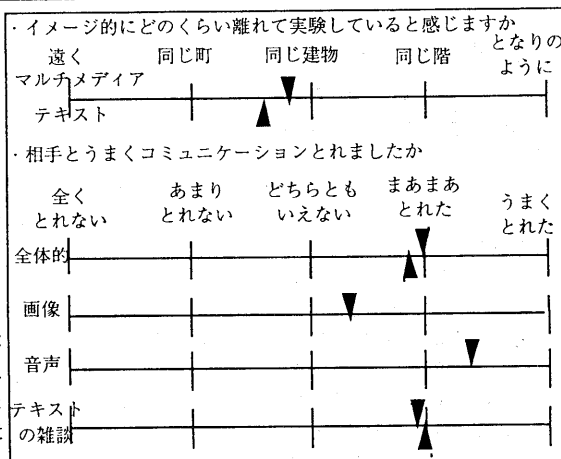 ・イメージ的にどのくらい離れて実験していると感じますか
遠く 同じ町 同じ建物 同じ階 となりの
ように
マルチメディア
テキスト
・相手とうまくコミュニケーションとれましたか
全く
とれない
あまり
とれない
どちらとも
いえない
まあまあ
とれた
うまく
とれた
全体的
画像
音声
テキスト
の雑談